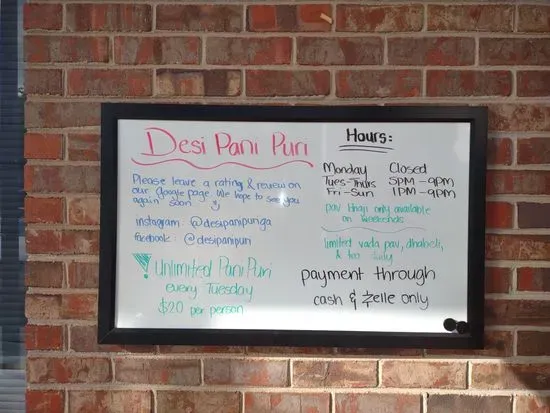 Desi Pani Puri
Please leave a rating & review on
our Google page. We hope to see you
again soon
instagram: @desipanipuriga
facebook: @desipanipuri
Unlimited Pani Puri
every Tuesday
$20 per person
Hours:
Monday Closed
Tues-Thurs 5PM-9PM
Fri-Sun 1PM-9PM
pav bhaji only available
on weekends
limited vada pav, dhabeli,
& daily
payment through
cash & zelle only